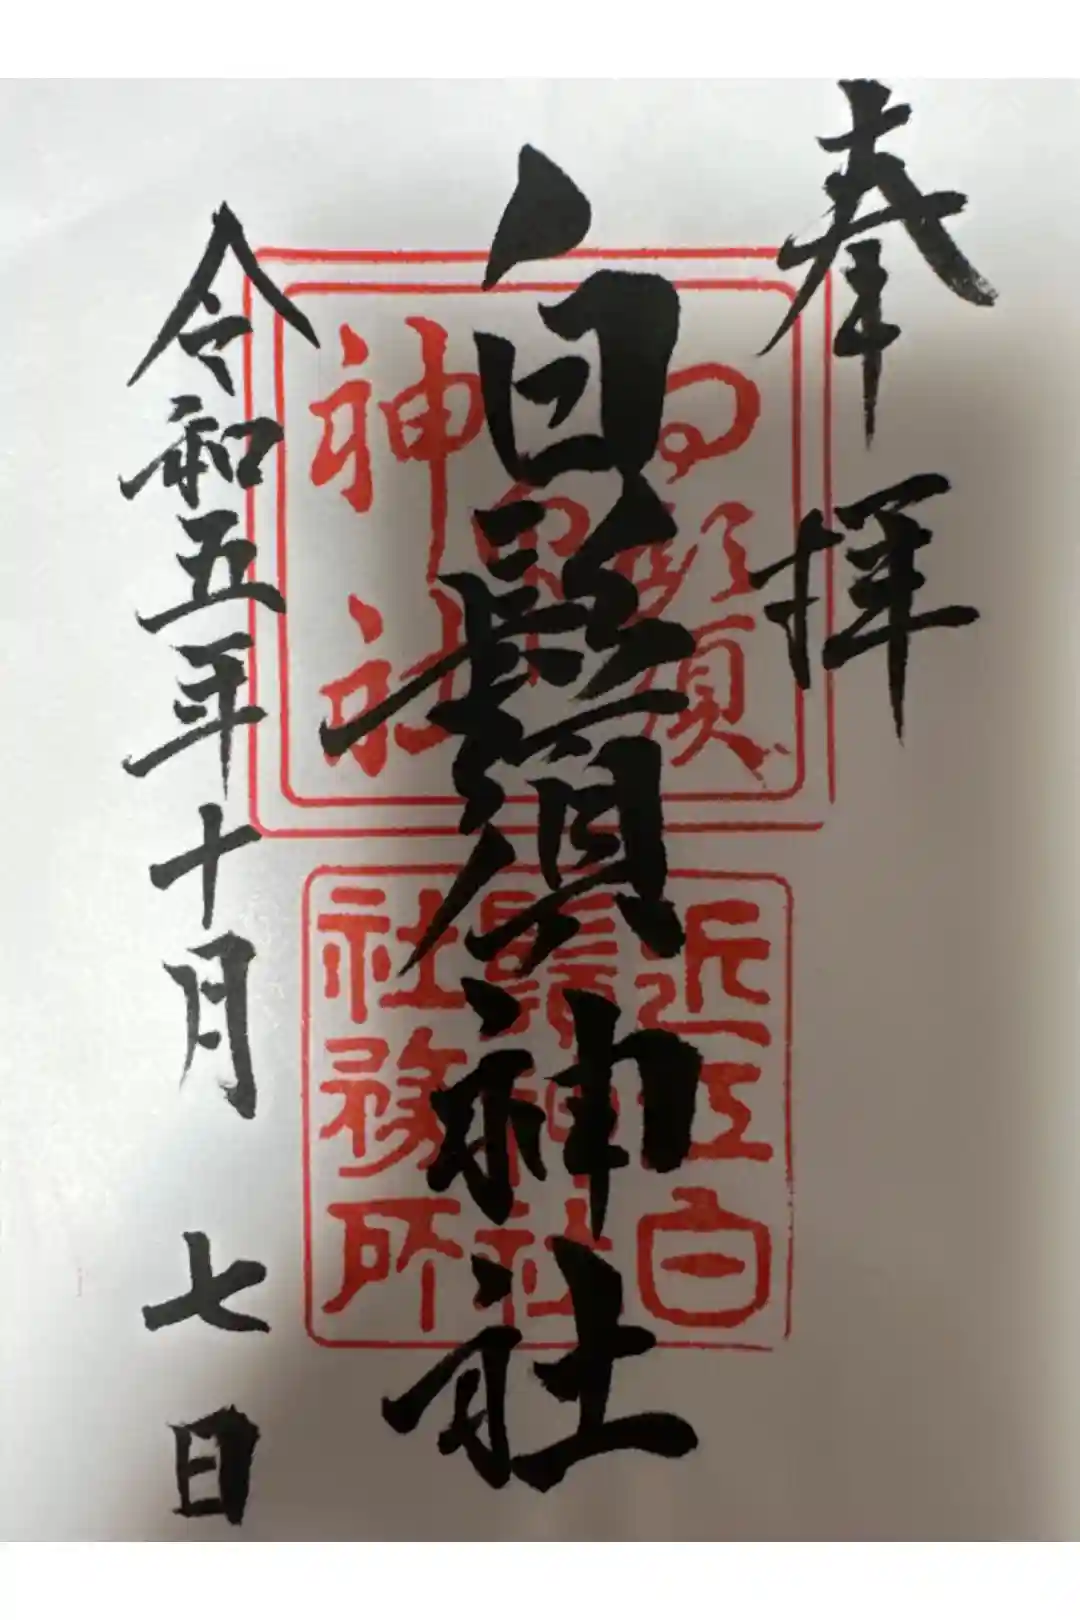 奉拝
白鬚神社
令和五年十月七日
神社
近江白
鬚神社
社務所